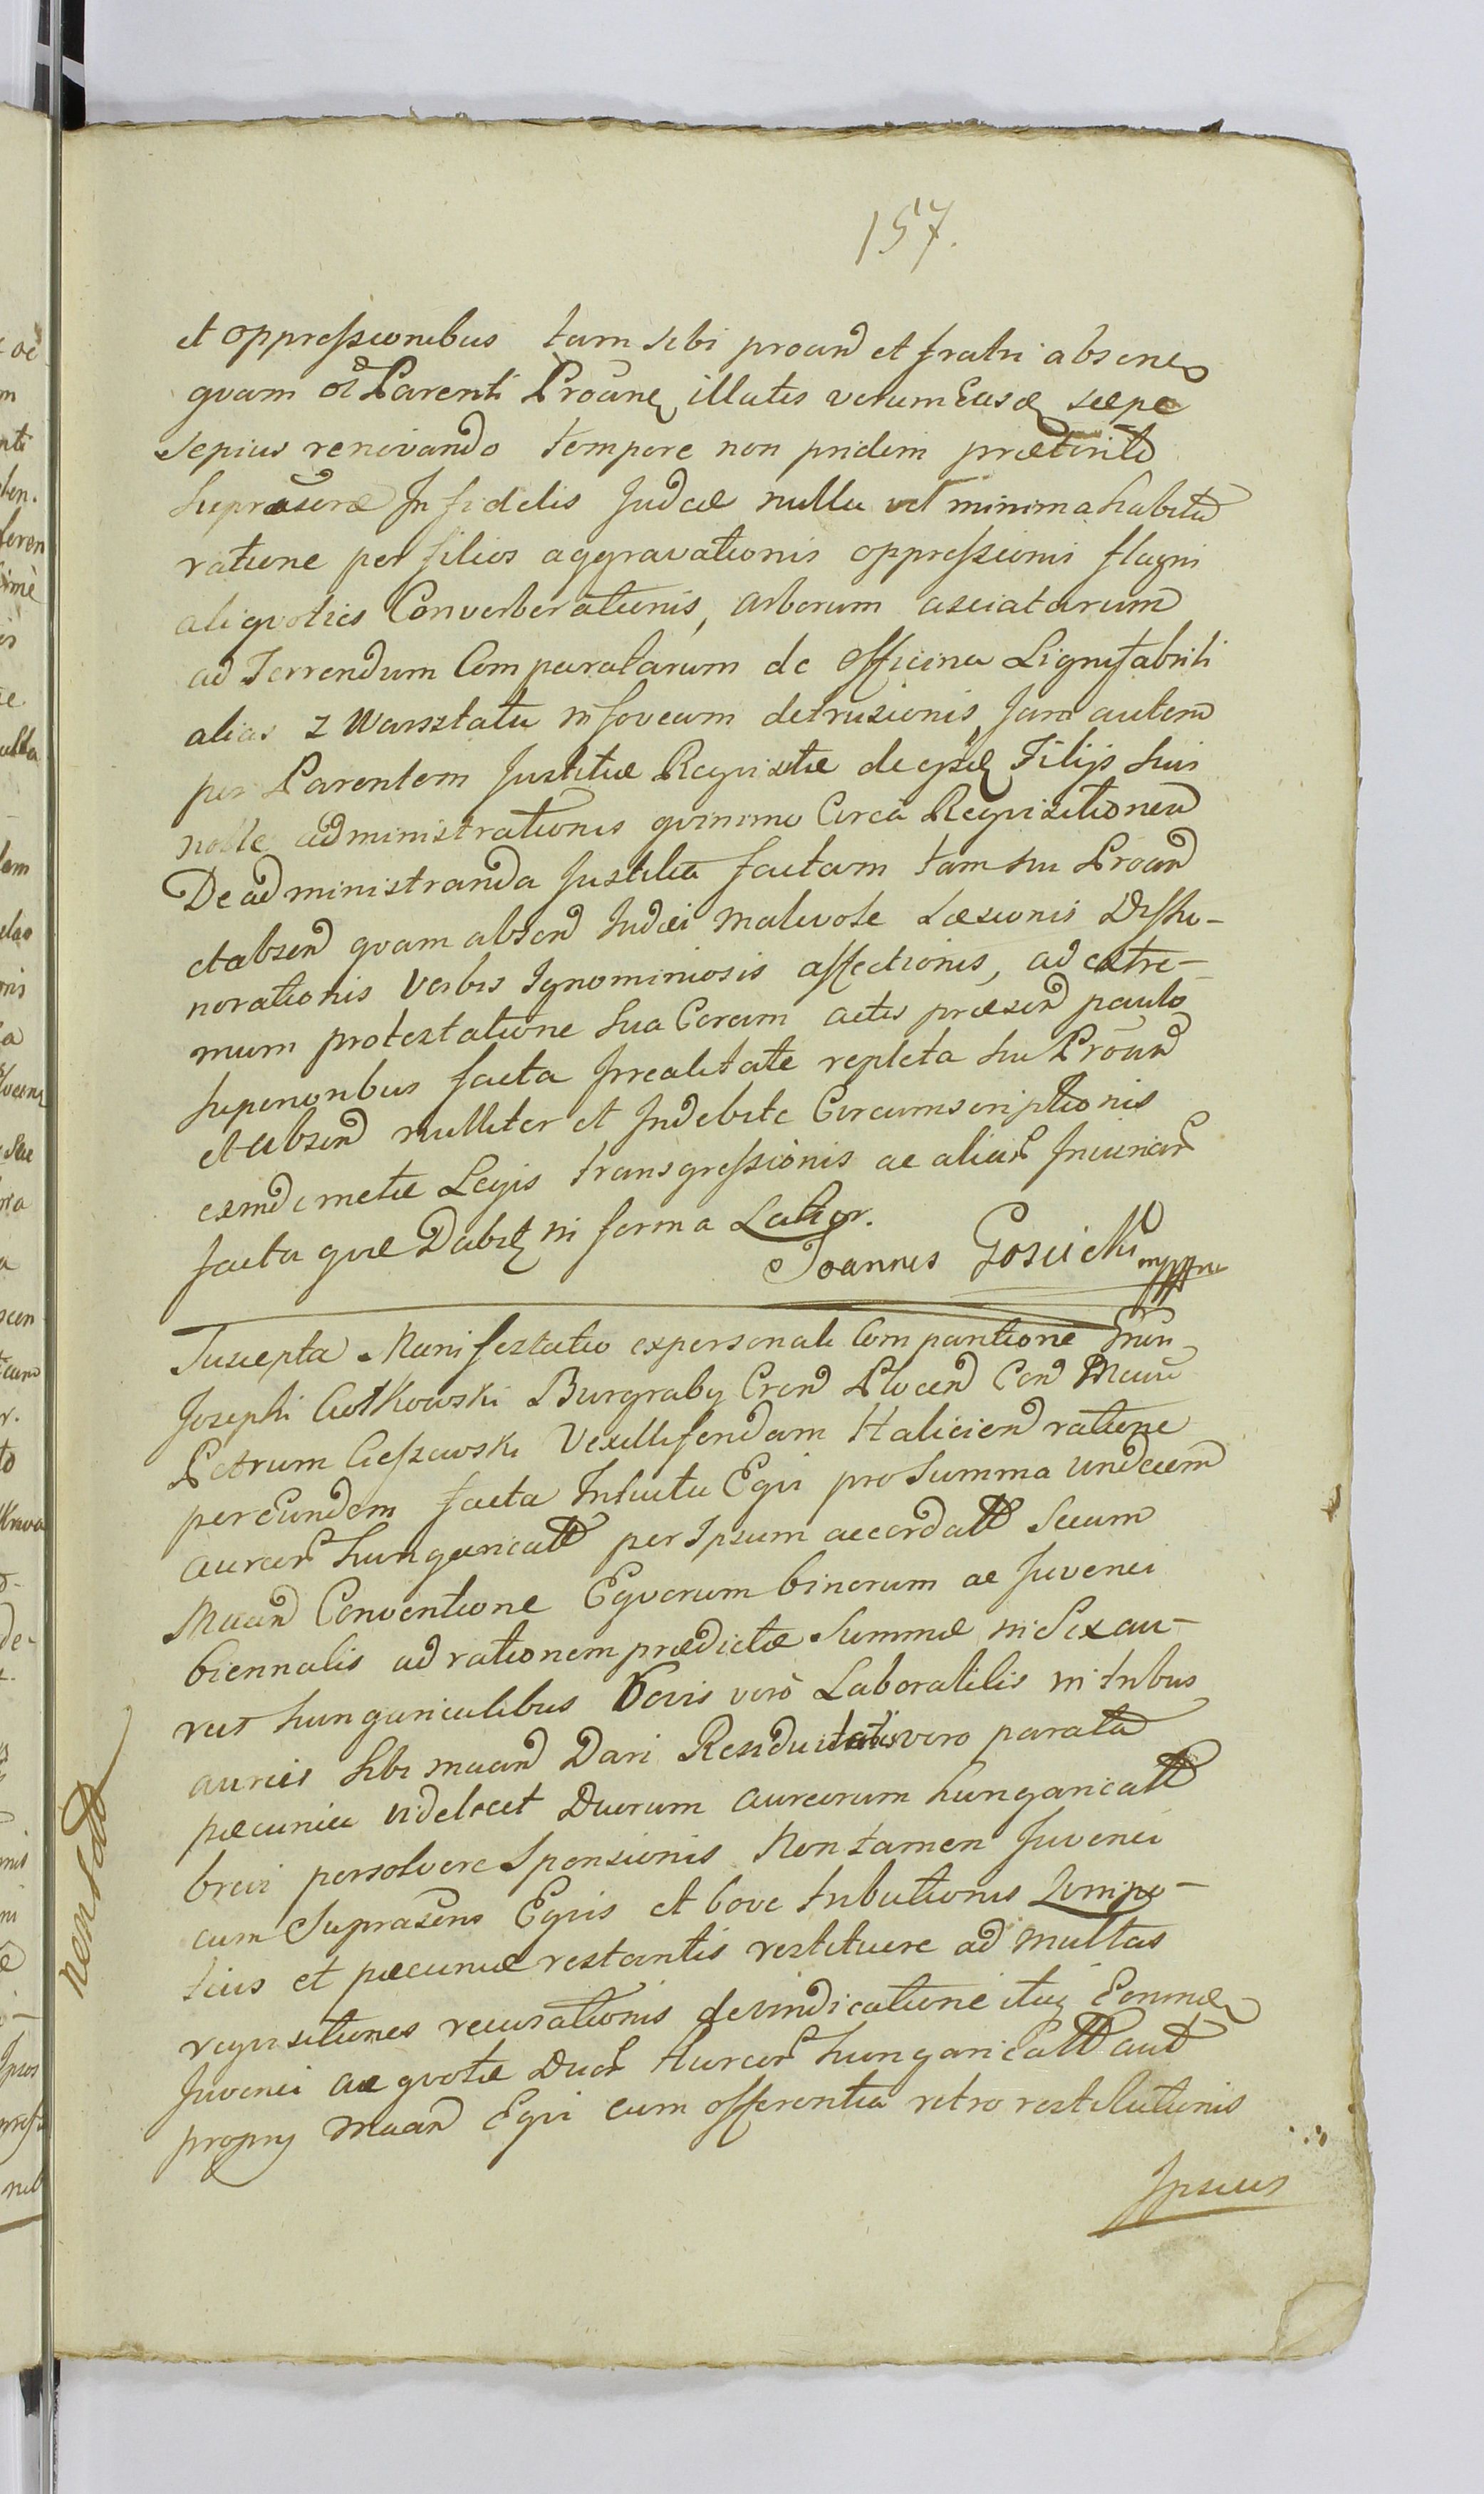 157.
et oppressionibus tam sibi proand et fratri absen
quam et Parenti Proane illatis verum Easd sæpe
sepius renovando tempore non pridem præterito
Suprascræ Infidelis Judæe nulla vel minima habita
ratione per filios aggravationis oppressionis
aliqvoties Converberationis, arborum asciatarum
ad Terrendum Comparatarum de Officina Lignifabrili
alias z Warsztatu in foveam detrusionis, Jam autem
per Parentem Justitiæ Reqvisitæ de Filijs suis
nolle administrationis qvinimo Circa Reqvisitionem
De administranda Justitia factam tam sui Proand
et absend qvam absend Judæi malevole Læsionis Disho-
norationis Verbis Ignominiosis affectionis, ad extre-
mum protestatione sua Coram actis præsend paulo
superioribus facta Irrealitate repleta sui Proand
et absend nulliter et Indebite Circumscriptionis
exinde metæ Legis transgressionis ac aliar Iniuriar
facta qvæ Dabit in forma Latior.
Joannes Gosicki mppria
Suscepta Manifestatio ex personali Comparitione
Josephi Ciotkowski Burgraby Cren Plocen Con
Petrum Cieszewski Vexilliferidam Halicien ratione
per Eundem facta Intuitu Eqvi pro Summa undecem
aureor hungaricall per Ipsum accordatt Secum
Maand Conventione Eqvorum binorum ac Juvenci
biennalis ad rationem prædictæ Summæ in Sex au-
reis hungaricalibus Bovis vero Laboratilis in tribus
aureis sibi maand Dari vero parata
pæcunia videlicet Duorum aureorum hungaricall
brevi persolvere Sponsionis Non tamen Juvenci
cum Suprascris Eqvis et bove tributionis Qvinpo-
tius et pæcuniæ restantis restituere ad multas
reqvisitiones recusationis devindicatione itaq
Juvenci ac qvotæ Duor Aureor hungaricall aut
proprij Maand Eqvi cum offerentia retro restitutionis
Ipsius